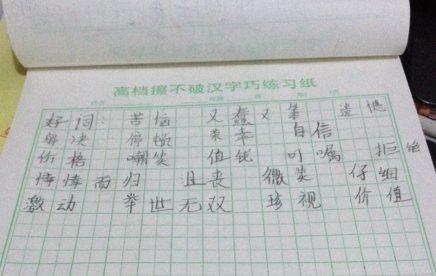 高档擦不破汉字巧练习纸
好词: 苦恼 又蠢又笨 遗憾
解决 停顿 自信
价格 嘲笑 值钱 叮嘱 拒绝
悻悻而归 且丧 微笑 仔细
激动 举世无双 珍视 价值